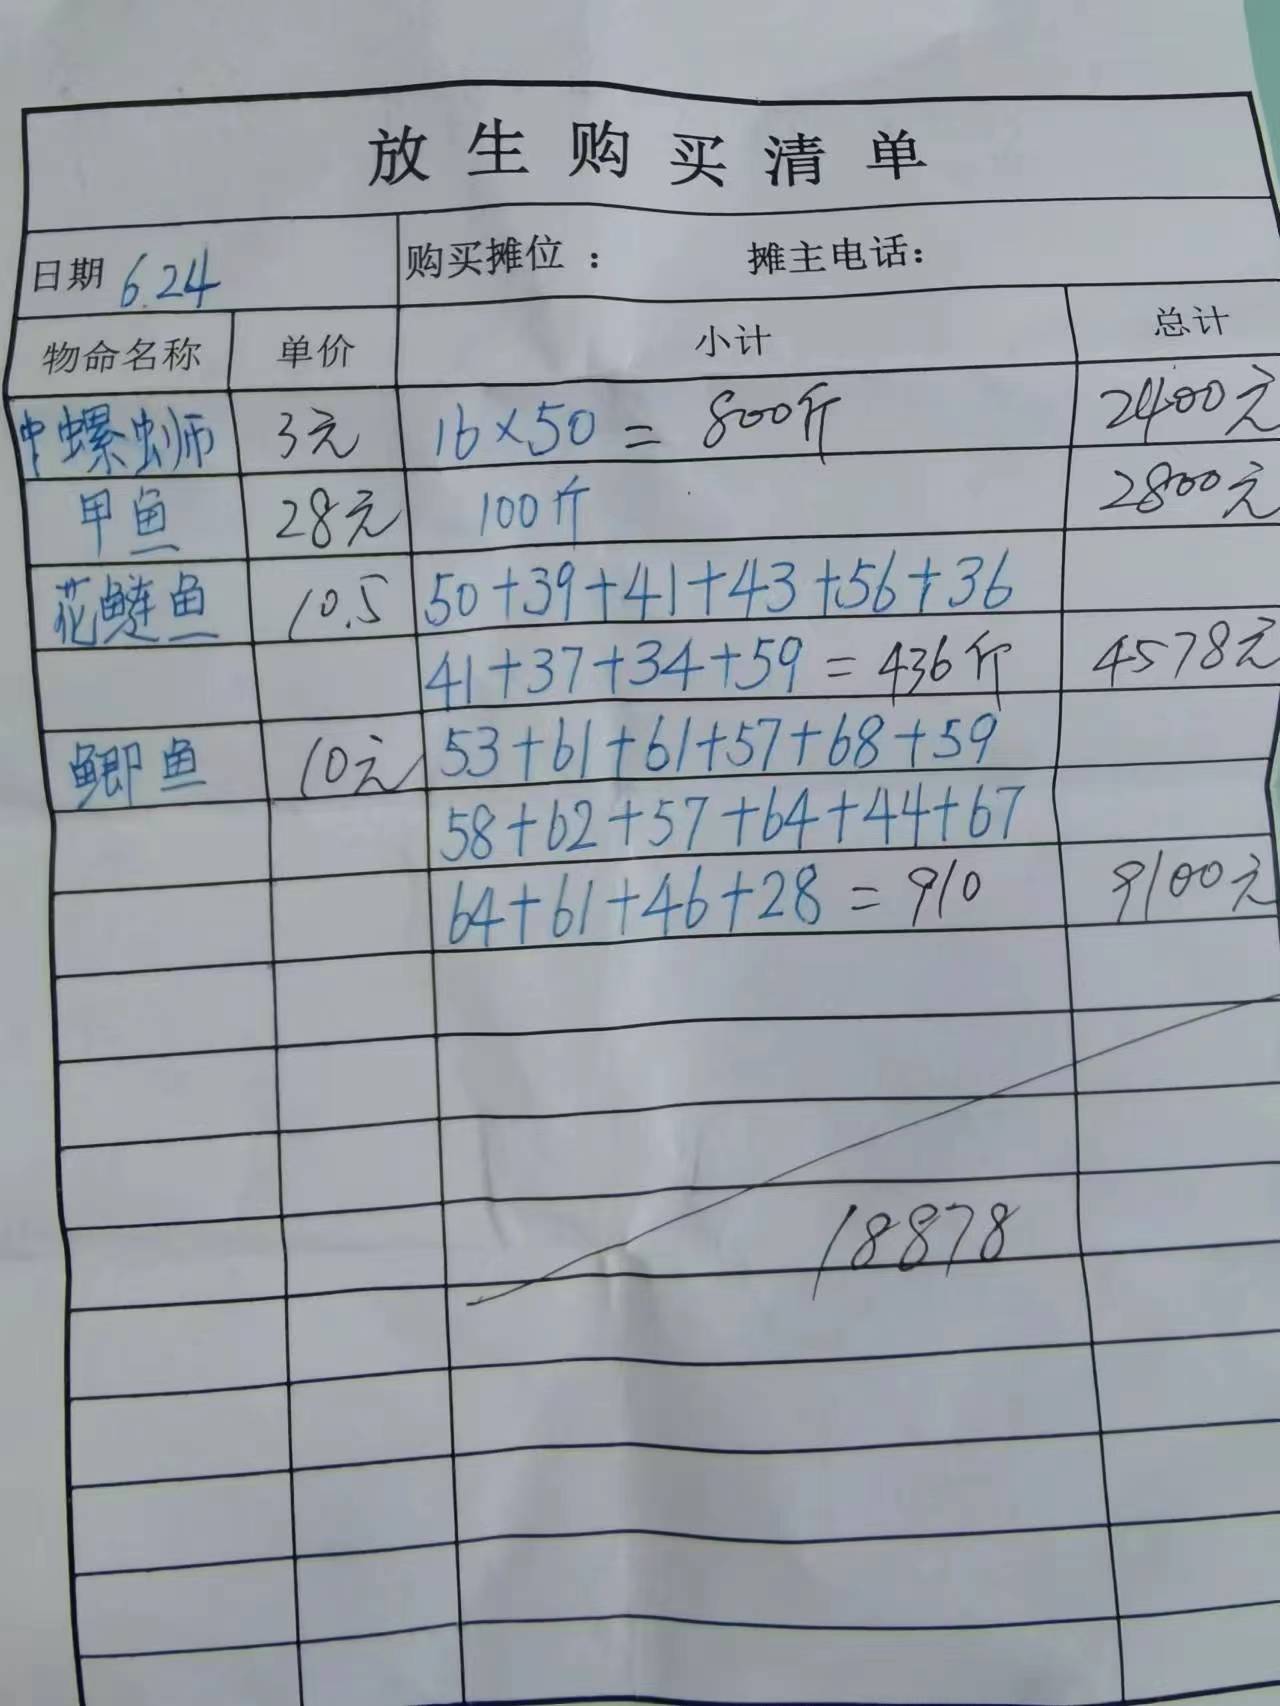 放生购买清单
日期 6.24 购买摊位： 摊主电话：
物命名称 单价 小计 总计
中螺蛳 3元 16×50 = 800斤 2400元
甲鱼 28元 100斤 2800元
花鲢鱼 10.5 50+39+41+43+56+36
41+37+34+59 = 436斤 4578元
鲫鱼 10元 53+61+61+57+68+59
58+62+57+64+44+67
64+61+46+28 = 910 9100元
18878